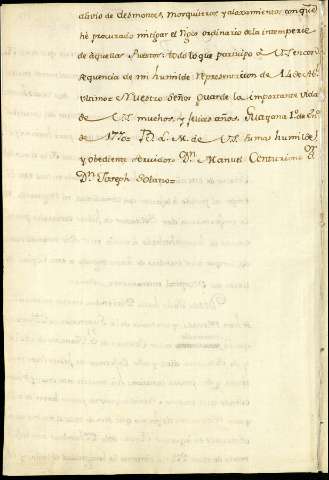 alivio de desmontes, mosquiteros y aloxamientos con qᵉ
hè procurado mitigar el rigor ordinario de la intemperie
de aquellas Puertos: todo lo que participo à VS. en con-
sequencia de mi humilde representacion de 14 de
ultimo = Nuestro Señor guarde la importante vida
de VS. muchos, y felices años. Guayana 1.º de En.º
de 1770 = B. L. M. de VS. su mas humilde
y obediente servidor Dⁿ. Manuel Centurion =
Dⁿ. Joseph Solano =